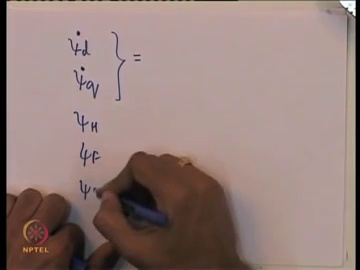 ψ̇d } =
ψ̇q
ψH
ψF
ψ
NPTEL